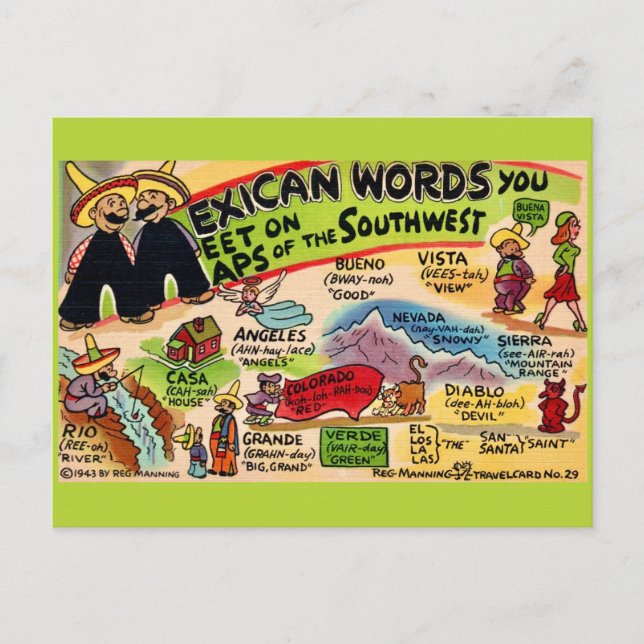 MEXICAN WORDS YOU
MEET ON
MAPS OF THE SOUTHWEST
BUENA
VISTA
BUENO
(BWAY-noh)
"GOOD"
VISTA
(VEES-tah)
"VIEW"
ANGELES
(AHN-hay-lace)
"ANGELS"
NEVADA
(nay-VAH-dah)
"SNOWY"
SIERRA
(see-AIR-rah)
"MOUNTAIN
RANGE"
CASA
(CAH-sah)
"HOUSE"
COLORADO
(koh-loh-RAH-doh)
"RED"
DIABLO
(dee-AH-bloh)
"DEVIL"
RIO
(REE-oh)
"RIVER"
GRANDE
(GRAHN-day)
"BIG, GRAND"
VERDE
(VAIR-day)
"GREEN"
EL
LOS
LA
LAS
"THE"
SAN
SANTA
"SAINT"
©1943 BY REG MANNING
REG MANNING TRAVELCARD No. 29